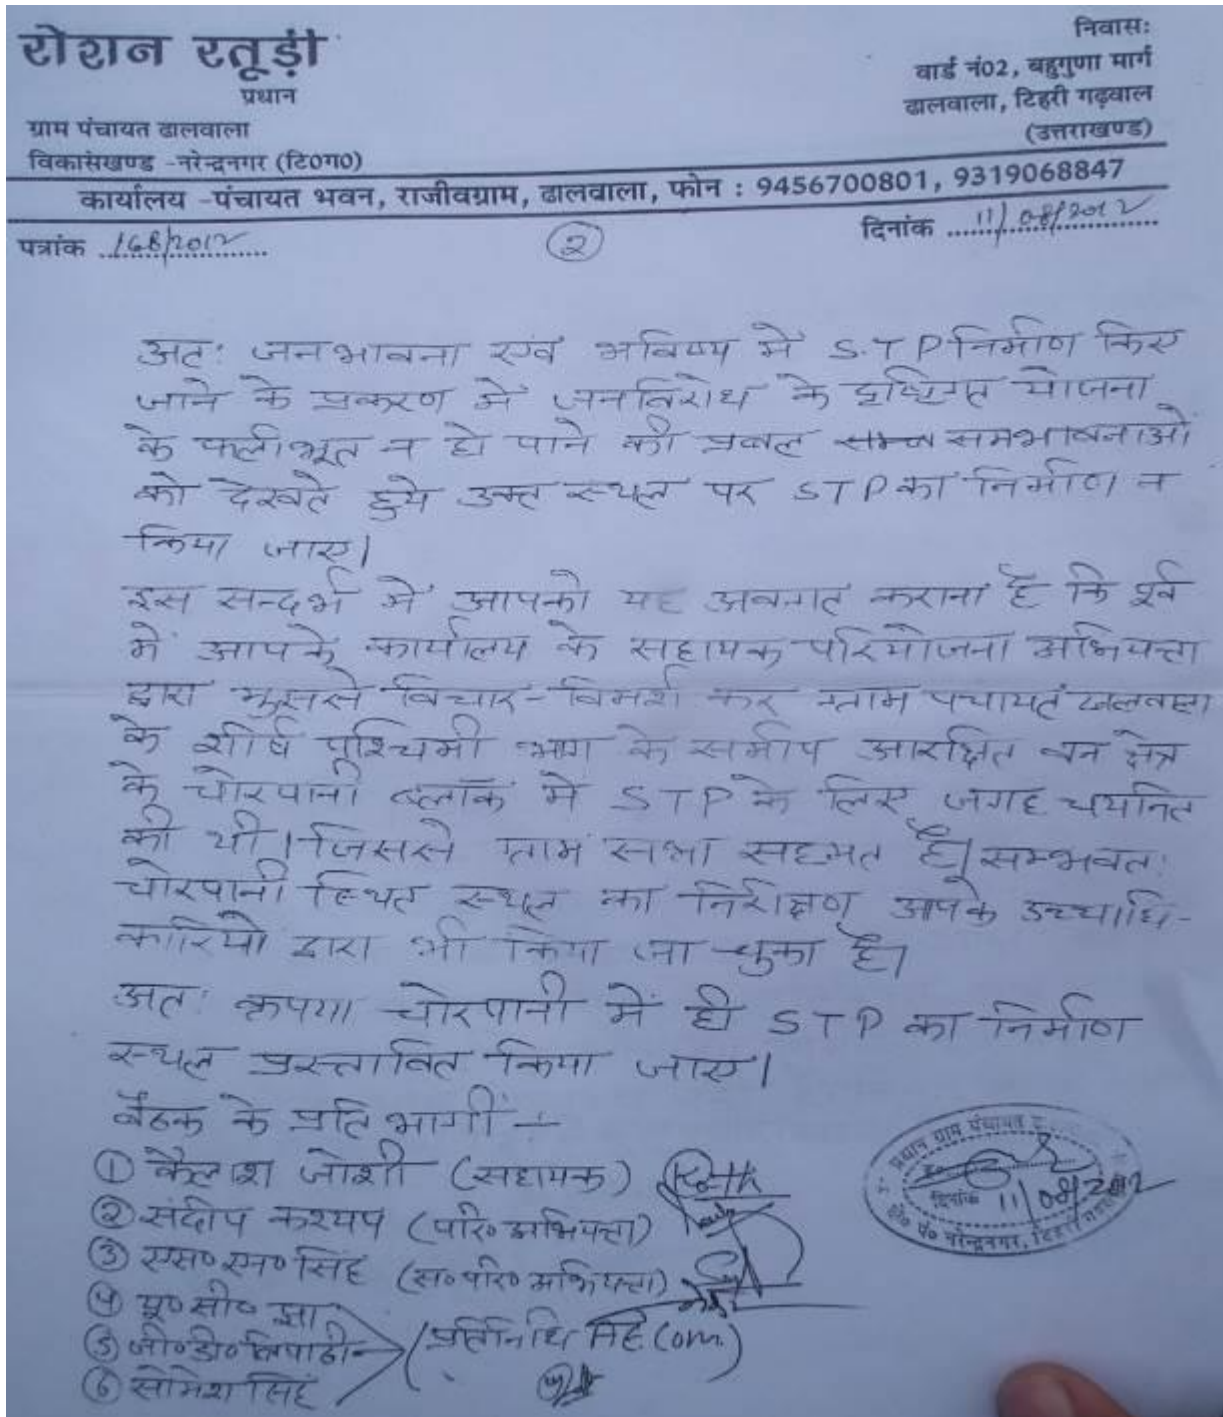 रोशन रतूड़ी
प्रधान
ग्राम पंचायत ढालवाला
विकासखण्ड -नरेन्द्रनगर (टि0ग0)
निवासः
वार्ड नं02, बहुगुणा मार्ग
ढालवाला, टिहरी गढ़वाल
(उत्तराखण्ड)
कार्यालय -पंचायत भवन, राजीवग्राम, ढालवाला, फोन : 9456700801, 9319068847
पत्रांक 168/2012
२
दिनांक 11/08/2012
अतः जनभावना एवं भविष्य में S.T P निर्माण किए
जाने के प्रकरण में जनविरोध के दृष्टिगत योजना
के फलीभूत न हो पाने की प्रबल सम्भावनाओं
को देखते हुये उक्त स्थल पर STP का निर्माण न
किया जाए।
इस सन्दर्भ में आपको यह अवगत कराना है कि पूर्व
में आपके कार्यालय के सहायक परियोजना अभियन्ता
द्वारा मुझसे विचार-विमर्श कर ग्राम पंचायत ढालवाला
के शीर्ष पश्चिमी भाग के समीप आरक्षित वन क्षेत्र
के चोरपानी ब्लॉक में STP के लिए जगह चयनित
की थी। जिससे ग्राम सभा सहमत है। सम्भवतः
चोरपानी स्थित स्थल का निरीक्षण आपके उच्चाधि-
कारियों द्वारा भी किया जा चुका है।
अतः कृपया चोरपानी में ही STP का निर्माण
स्थल प्रस्तावित किया जाए।
बैठक के प्रतिभागी :-
① कैलाश जोशी (सहायक)
② संदीप कश्यप (परि० अभियन्ता)
③ एस० एम० सिंह (स० परि० अभियन्ता)
④ यू० सी० झा
⑤ जी० डी० त्रिपाठी (प्रतिनिधि (om.)
⑥ सोमेश सिंह
प्रधान ग्राम पंचायत
दिनांक 11/08/2012
नरेन्द्रनगर, टिहरी